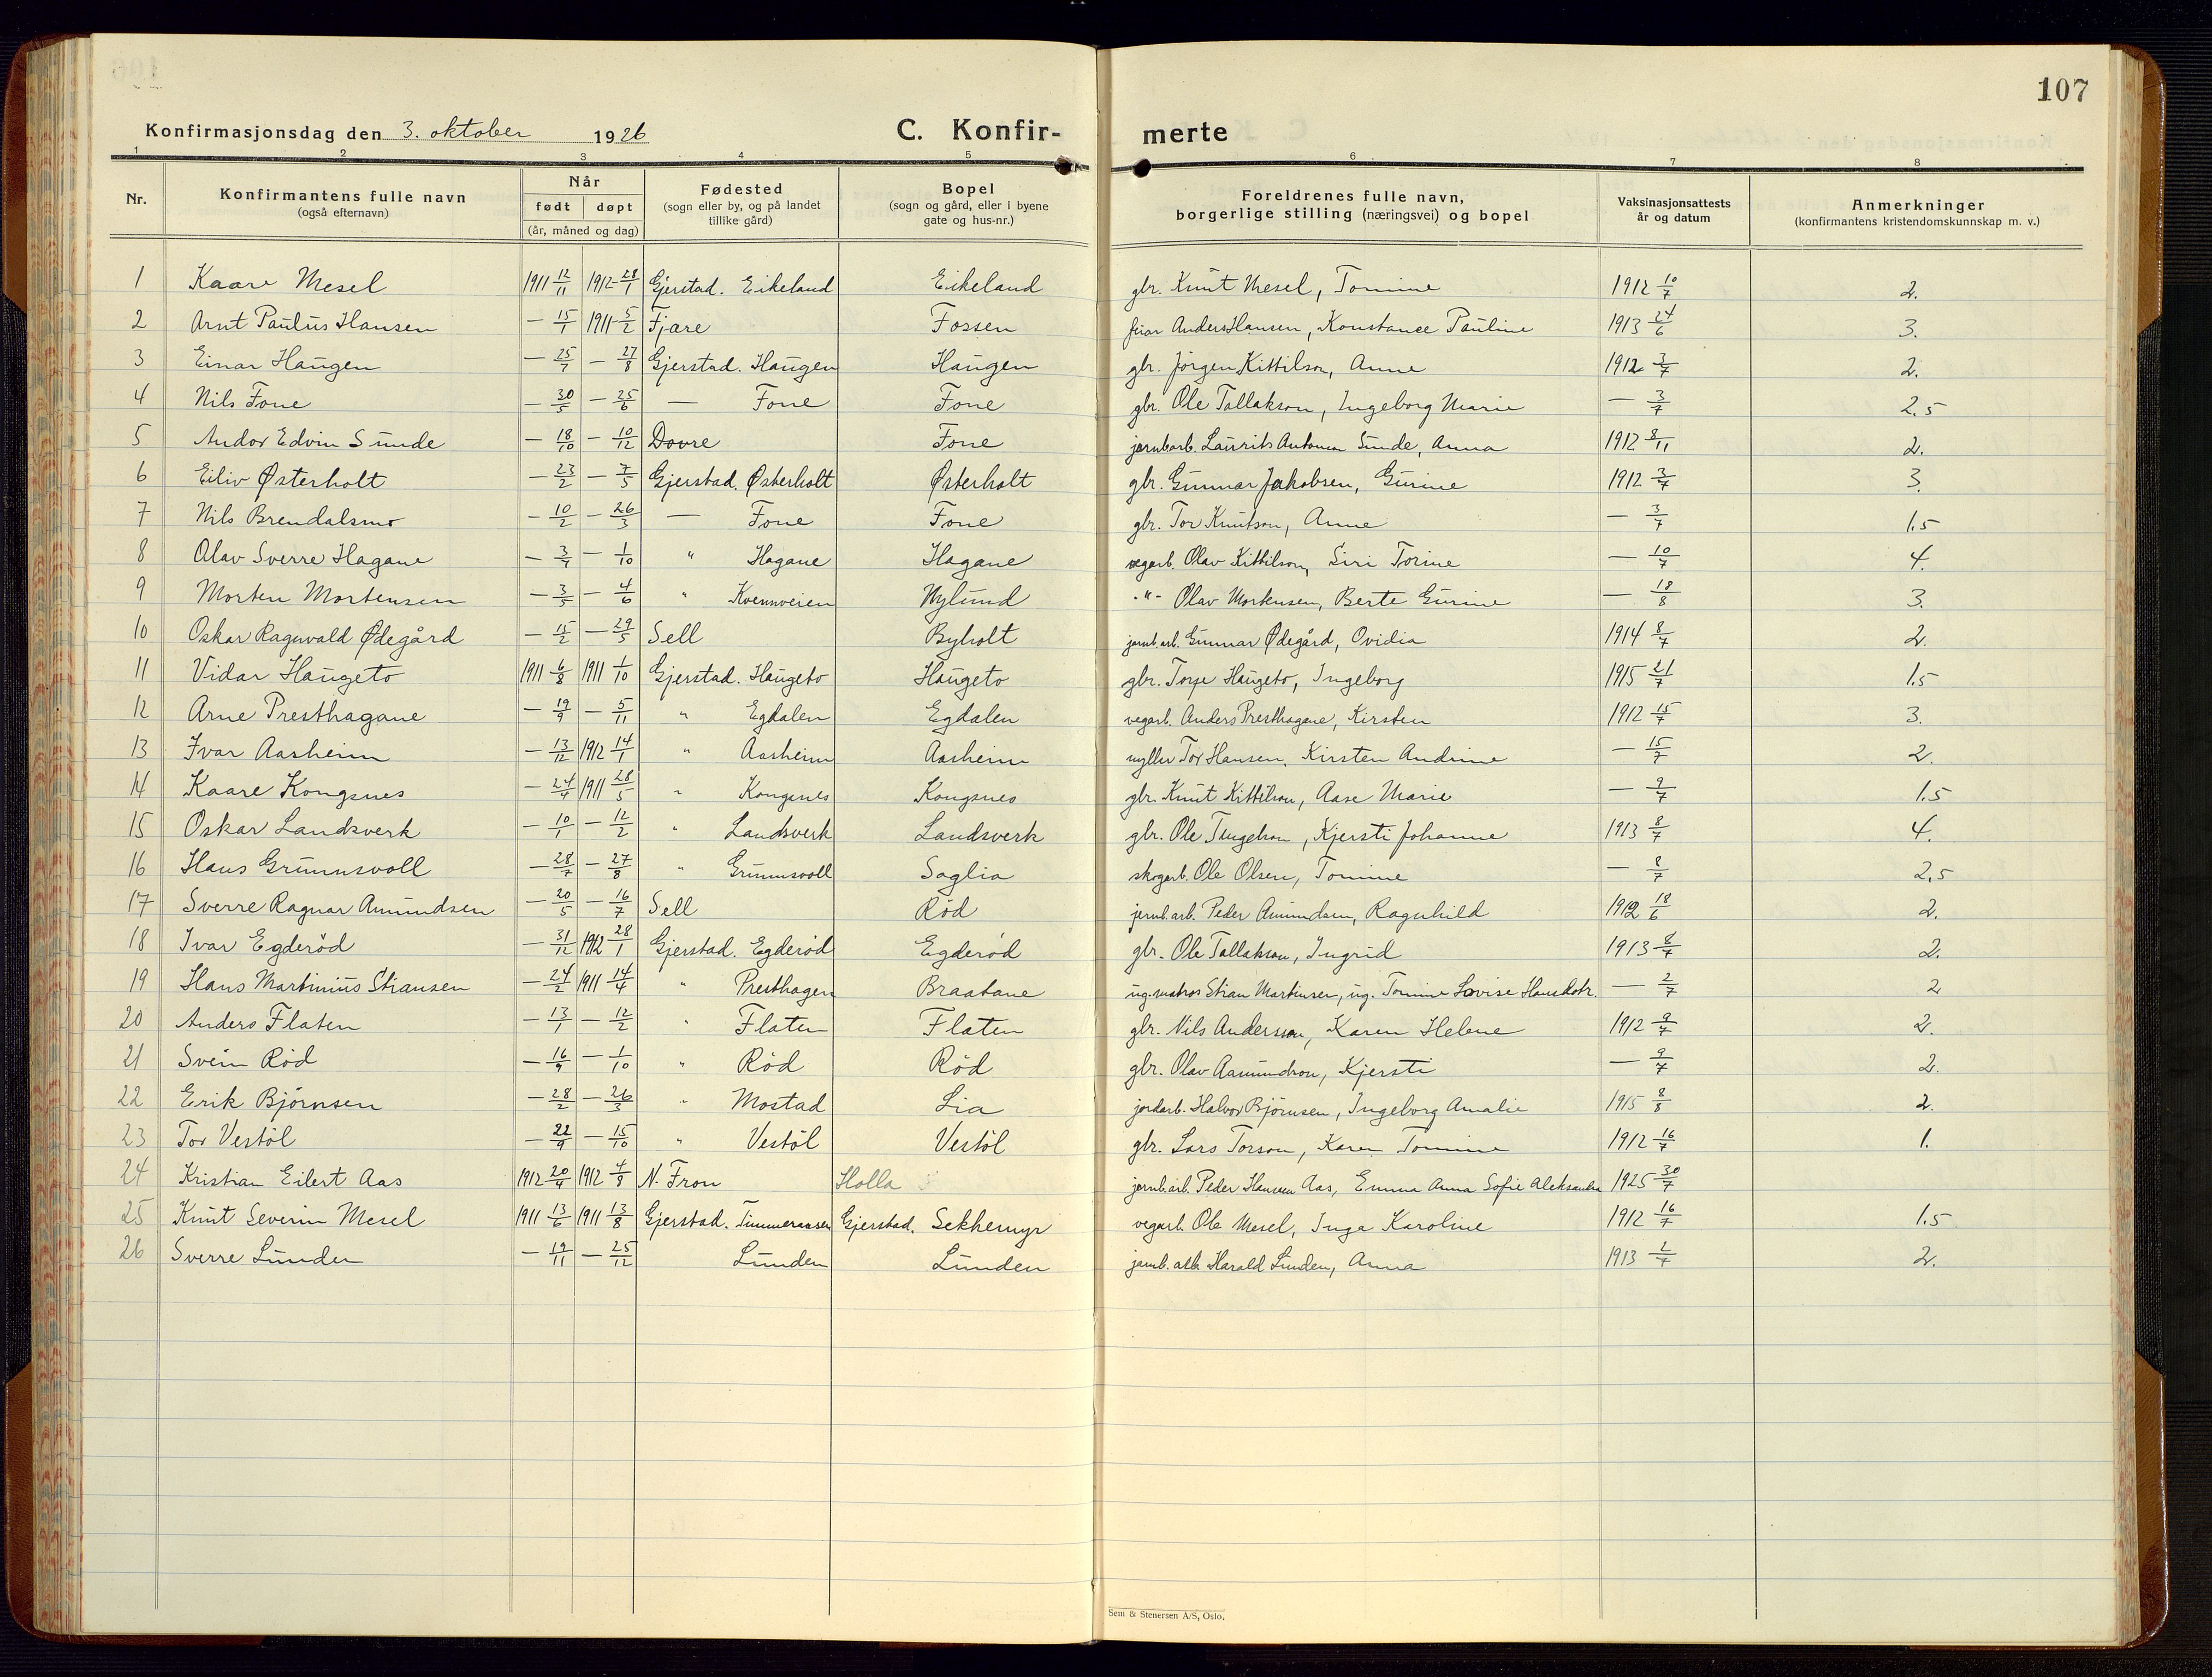 107
Konfirmasjonsdag den 3. oktober 1926 C. Konfir- merte
1 2 3 4 5 6 7 8
Nr. Konfirmantens fulle navn (også efternavn) Når født døpt (år, måned og dag) Fødested (sogn eller by, og på landet tillike gård) Bopel (sogn og gård, eller i byene gate og hus-nr.) Foreldrenes fulle navn, borgerlige stilling (næringsvei) og bopel Vaksinasjonsattests år og datum Anmerkninger (konfirmantens kristendomskunnskap m. v.)
1 Kaare Mesel 1911 12/11 1912 28/1 Gjerstad. Eikeland Eikeland gbr. Knut Mesel, Tomine 1912 10/7 2.
2 Arnt Paulus Hansen — 15/1 1911 5/2 Fjære Fossen Anders Hansen, Konstance Pauline 1913 24/6 3.
3 Einar Haugen — 25/7 — 27/8 Gjerstad. Haugen Haugen gbr. Jørgen Kittilson, Anne 1912 3/7 2.
4 Nils Fone — 30/5 — 25/6 — Fone Fone gbr. Ole Tallakson, Ingeborg Marie — 3/7 2,5
5 Andor Edvin Sunde — 18/10 — 10/12 Dovre Fone jernb.arb. Laurits Antonson Sunde, Anna 1912 8/11 2.
6 Eiliv Østerholt — 23/2 — 7/5 Gjerstad. Østerholt Østerholt gbr. Gunnar Jakobsen, Gurine 1912 3/7 3.
7 Nils Brendalsmo — 10/2 — 26/3 — Fone Fone gbr. Tor Knutson, Anne — 3/7 1.5
8 Olav Sverre Hagane — 3/9 — 1/10 " Hagane Hagane vegarb. Olav Kittilson, Siri Torine — 10/7 4.
9 Morten Mortensen — 3/5 — 4/6 " Kvennveien Nylund -"- Olav Mortensen, Berte Gurine — 18/8 3.
10 Oskar Ragnvald Ødegård — 15/2 — 29/5 Sell Byholt jernb.arb. Gunnar Ødegård, Ovidia 1914 8/7 2.
11 Vidar Haugeto 1911 6/8 1911 1/10 Gjerstad. Haugeto Haugeto gbr. Torje Haugeto, Ingeborg 1915 21/7 1.5
12 Arne Presthagane — 19/9 — 5/11 " Egdalen Egdalen vegarb. Anders Presthagane, Kirsten 1912 15/7 3.
13 Ivar Aasheim — 13/12 1912 14/1 " Aasheim Aasheim Tor Hansen, Kirsten Andrine — 15/7 2.
14 Kaare Kongsnes — 24/4 1911 28/5 " Kongsnes Kongsnes gbr. Knut Kittilson, Aase Marie — 9/7 1.5
15 Oskar Landsverk — 10/1 — 12/2 " Landsverk Landsverk gbr. Ole , Kjersti Johanne 1913 8/7 4.
16 Hans Grunnsvoll — 28/7 — 27/8 " Grunnsvoll Soglia skogarb. Ole Olsen, Tomine — 8/7 2,5
17 Sverre Ragnar Amundsen — 20/5 — 16/7 Sell Rød jernb.arb. Peder Amundsen, Ragnhild 1912 18/6 2.
18 Ivar Egderød — 31/12 1912 28/1 Gjerstad. Egderød Egderød gbr. Ole Tallakson, Ingrid 1913 8/7 2.
19 Hans Martinius Stiansen — 24/2 1911 14/4 " Presthagen Braatane ug.matros Stian Martinsen, ug. Tomine Lovise Hansdotr. — 2/7 2
20 Anders Flaten — 13/1 — 12/2 " Flaten Flaten gbr. Nils Andersson, Karen Helene 1912 9/7 2.
21 Svein Rød — 16/9 — 1/10 " Rød Rød gbr. Olav Aamundson, Kjersti — 9/7 2.
22 Erik Bjørnsen — 28/2 — 26/3 " Mostad Lia jordarb. Halvor Bjørnsen, Ingeborg Amalie 1915 8/8 2.
23 Tor Vestøl — 22/9 — 15/10 " Vestøl Vestøl gbr. Lars Torson, Karen Tomine 1912 16/7 1.
24 Kristian Eilert Aas 1912 20/4 1912 4/8 N. Fron Holla jernb.arb. Peder Hansen Aas, Emma Anna Sofie Aleksandra 1925 30/7
25 Knut Severin Mesel 1911 13/6 1911 13/8 Gjerstad. Timmeraasen Gjerstad. Sekkemyr vegarb. Ole Mesel, Inga Karoline 1912 16/7 1.5
26 Sverre Lunden — 19/11 — 25/12 Lunden Lunden jernb.arb. Harald Lunden, Anna 1913 2/7 2.
Sem & Stenersen A/S, Oslo.